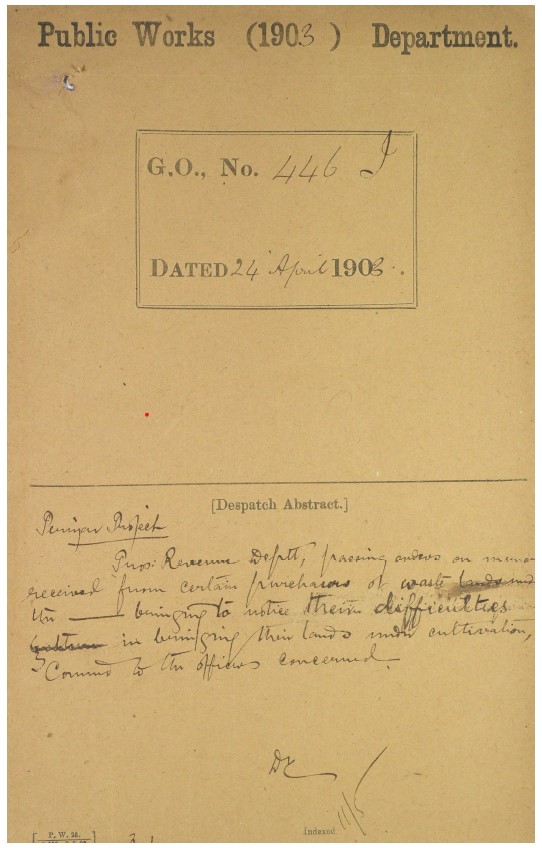 Public Works (1903) Department.
G.O., No. 446 I
DATED 24 April 1903.
[Despatch Abstract.]
Periyar Project
Progs Revenue Deptt, passing orders on memo
received from certain purchasers of waste lands und
the —— bringing to notice their difficulties
in bringing their lands under cultivation,
Commd to the officers concerned.
Indexed 11/5
[P.W. 28.